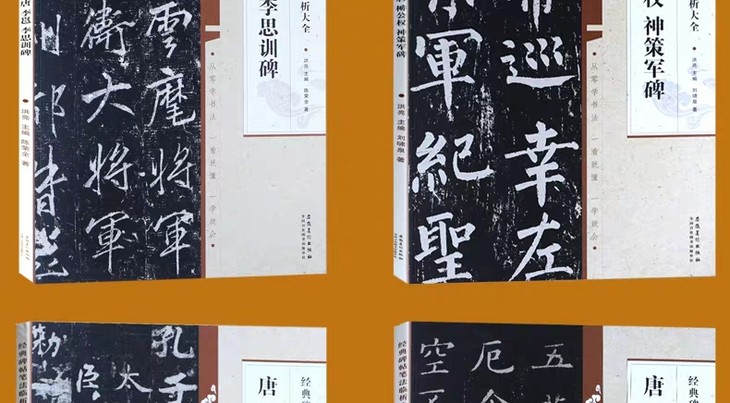 唐 李邕 李思训碑
洪亮 主编 陈荣全 著
雲麾將軍
衛大將軍
析大全
李思训碑
洪亮 主编 陈荣全 著
从零学书法 一看就懂 一学就会
安徽美術出版社
柳公权 神策军碑
洪亮 主编 刘啸泉 著
巡幸左
軍紀聖
析大全
权 神策军碑
洪亮 主编 刘啸泉 著
从零学书法 一看就懂 一学就会
安徽美術出版社
经典碑帖笔法临析
孔子
太
臣
勅
经典碑
唐
经典碑帖笔法临析
五
厄
空
经典碑
唐